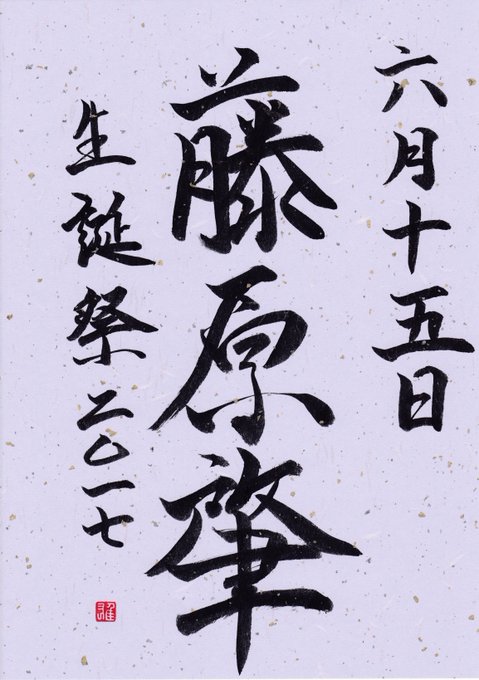 六月十五日
藤原肇
生誕祭二〇一七
雅